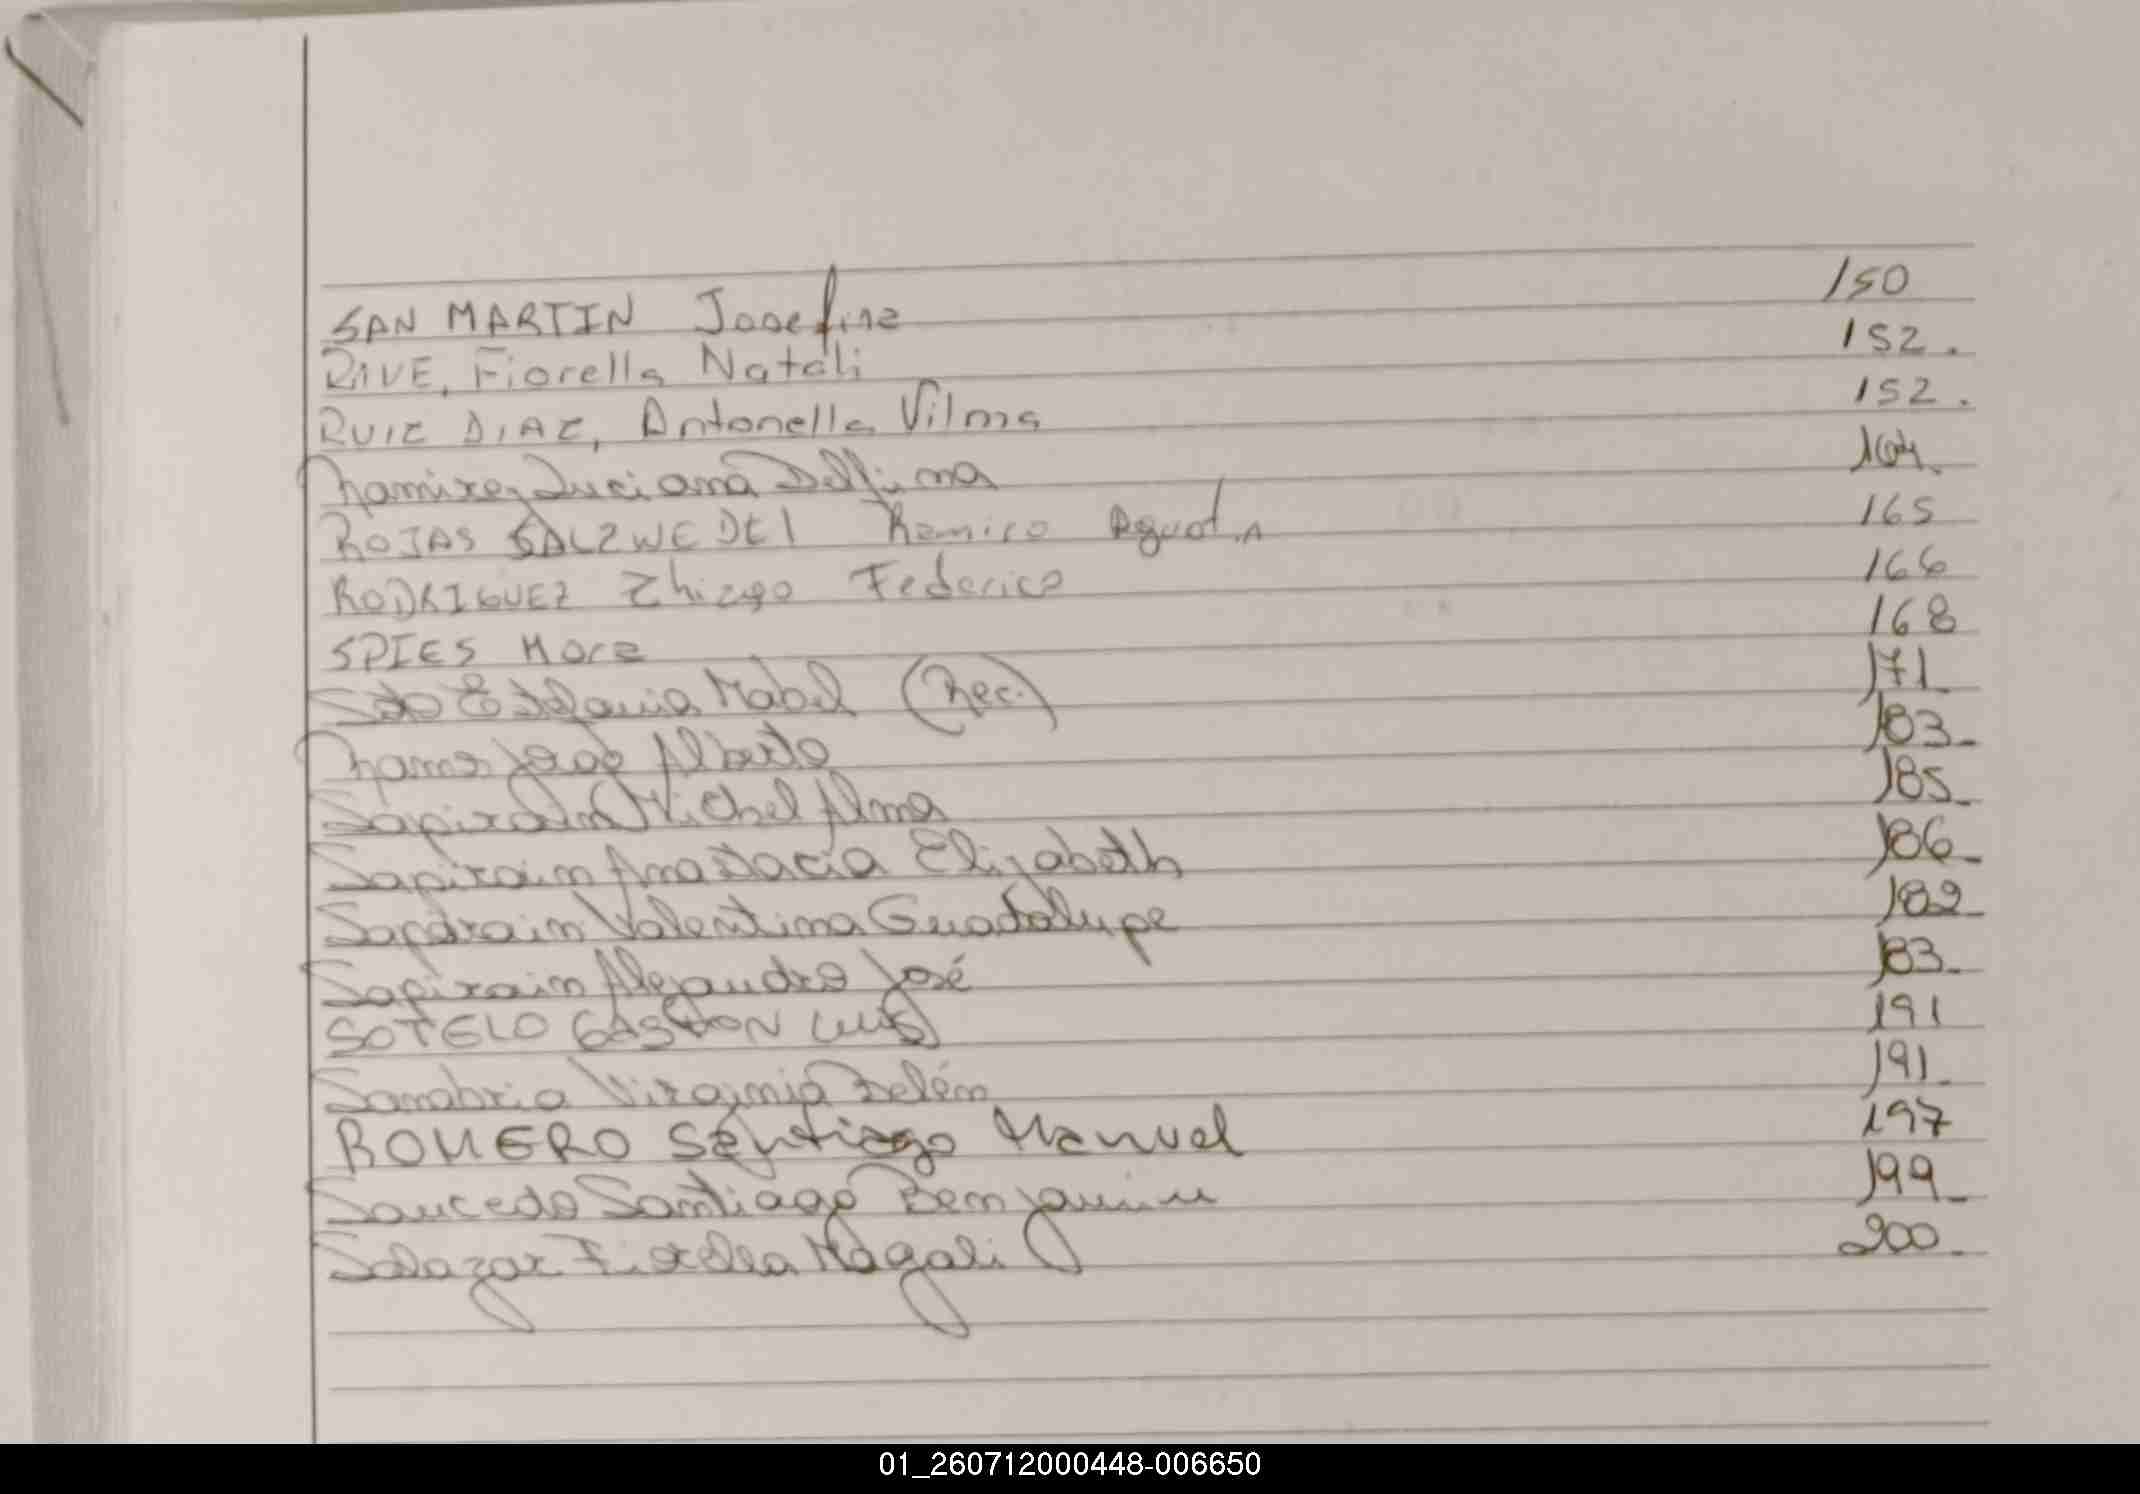 SAN MARTIN Josefina 150
RIVE, Fiorella Natali 152.
RUIZ DIAZ, Antonella Vilma 152.
Ramirez Luciana Delfina 164.
ROJAS SALZWEDEL Ramiro Agust.n 165
RODRIGUEZ Thiago Federico 166
SPIES Mora 168
Soto Estefania Mabel (Rec.) 171
Ramos Jorge Alberto 183-
Sapirain Michel Alma 185-
Sapirain Anastacia Elizabeth 186-
Sapirain Valentina Guadalupe 182-
Sapirain Alejandro José 183-
SOTELO GASTON LUIS 191
Sanabria Virginia Belén 191-
ROMERO Santiago Manuel 197
Saucedo Santiago Benjamin 199-
Salazar Magali 200-
01_260712000448-006650